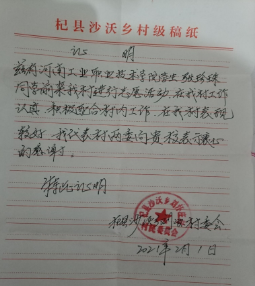 杞县沙沃乡村级稿纸
证 明
兹有河南工业职业技术学院学生张珍珠
同学前来我村进行志愿活动，在我村工作
认真，积极配合村内工作，在我村表现
较好，我代表村两委向贵校表示衷心
的感谢！
特此证明
杞县沙沃乡 村委会
村民委员会
2021年2月1日